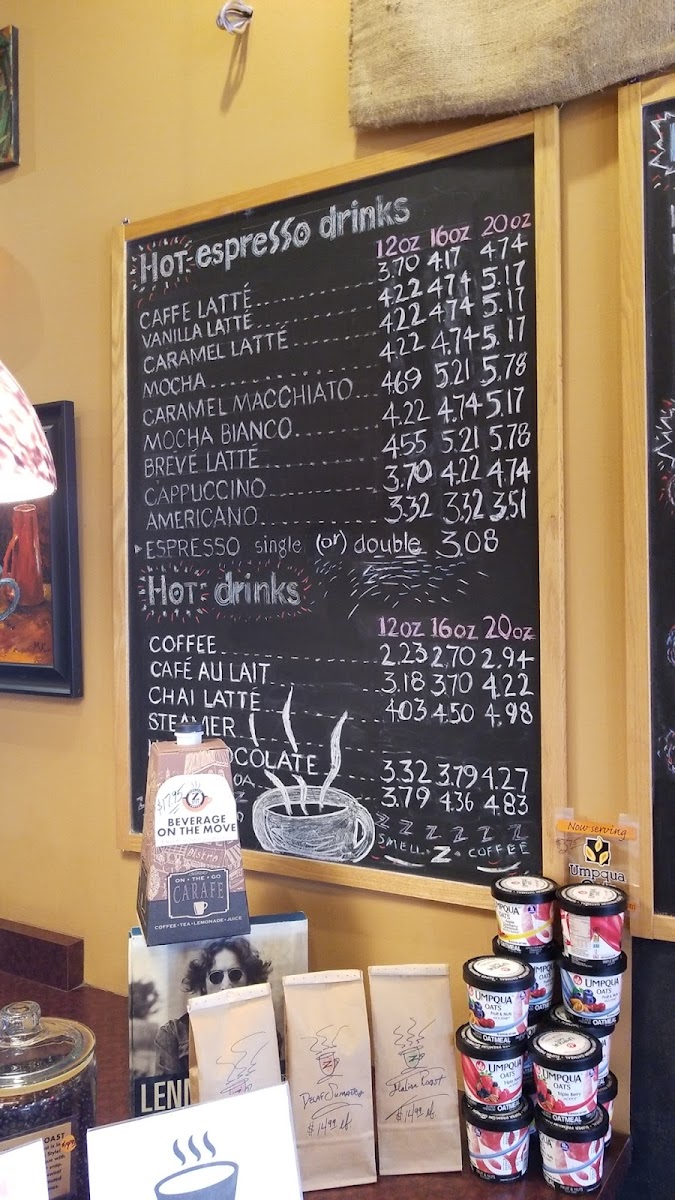 Hot espresso drinks
12oz 16oz 20oz
CAFFE LATTÉ 3.70 4.17 4.74
VANILLA LATTÉ 4.22 4.74 5.17
CARAMEL LATTÉ 4.22 4.74 5.17
MOCHA 4.22 4.74 5.17
CARAMEL MACCHIATO 4.69 5.21 5.78
MOCHA BIANCO 4.22 4.74 5.17
BREVÉ LATTE 4.55 5.21 5.78
CAPPUCCINO 3.70 4.22 4.74
AMERICANO 3.32 3.32 3.51
ESPRESSO single (or) double 3.08
Hot drinks
12oz 16oz 20oz
COFFEE 2.23 2.70 2.94
CAFÉ AU LAIT 3.18 3.70 4.22
CHAI LATTÉ 4.03 4.50 4.98
STEAMER
OCOLATE 3.32 3.79 4.27
OA 3.79 4.36 4.83
Z Z Z Z Z Z
SMELL Z COFFEE
$17.95
BEVERAGE
ON THE MOVE
bistro
ON • THE • GO
CARAFE
COFFEE • TEA • LEMONADE • JUICE
LENN
Decaf Sumatra
$14.99 lb.
Italian Roast
$14.99 lb.
Now serving
Umpqua
UMPQUA
OATS
UMPQUA
OATS
Fruit & Nuts
OATMEAL
UMPQUA
OATS
Triple Berry
OATMEAL
OAST